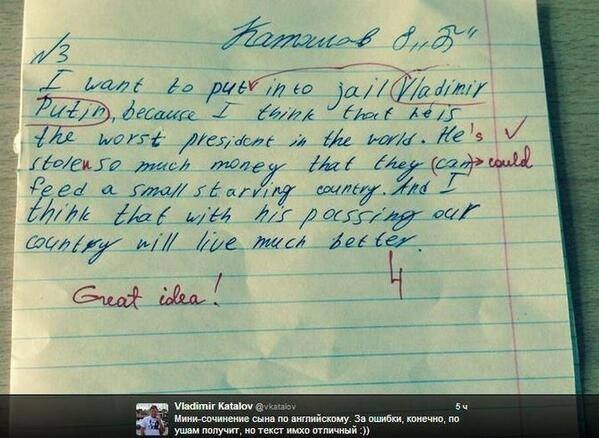 Катышов 8 "Б"
№3
I want to put into jail Vladimir
Putin, because I think that he is
the worst president in the world. He's
stolen so much money that they can → could
feed a small starving country. And I
think that with his passing our
country will live much better.
4
Great idea!
Vladimir Katalov @vkatalov 5 ч
Мини-сочинение сына по английскому. За ошибки, конечно, по
ушам получит, но текст имхо отличный :))